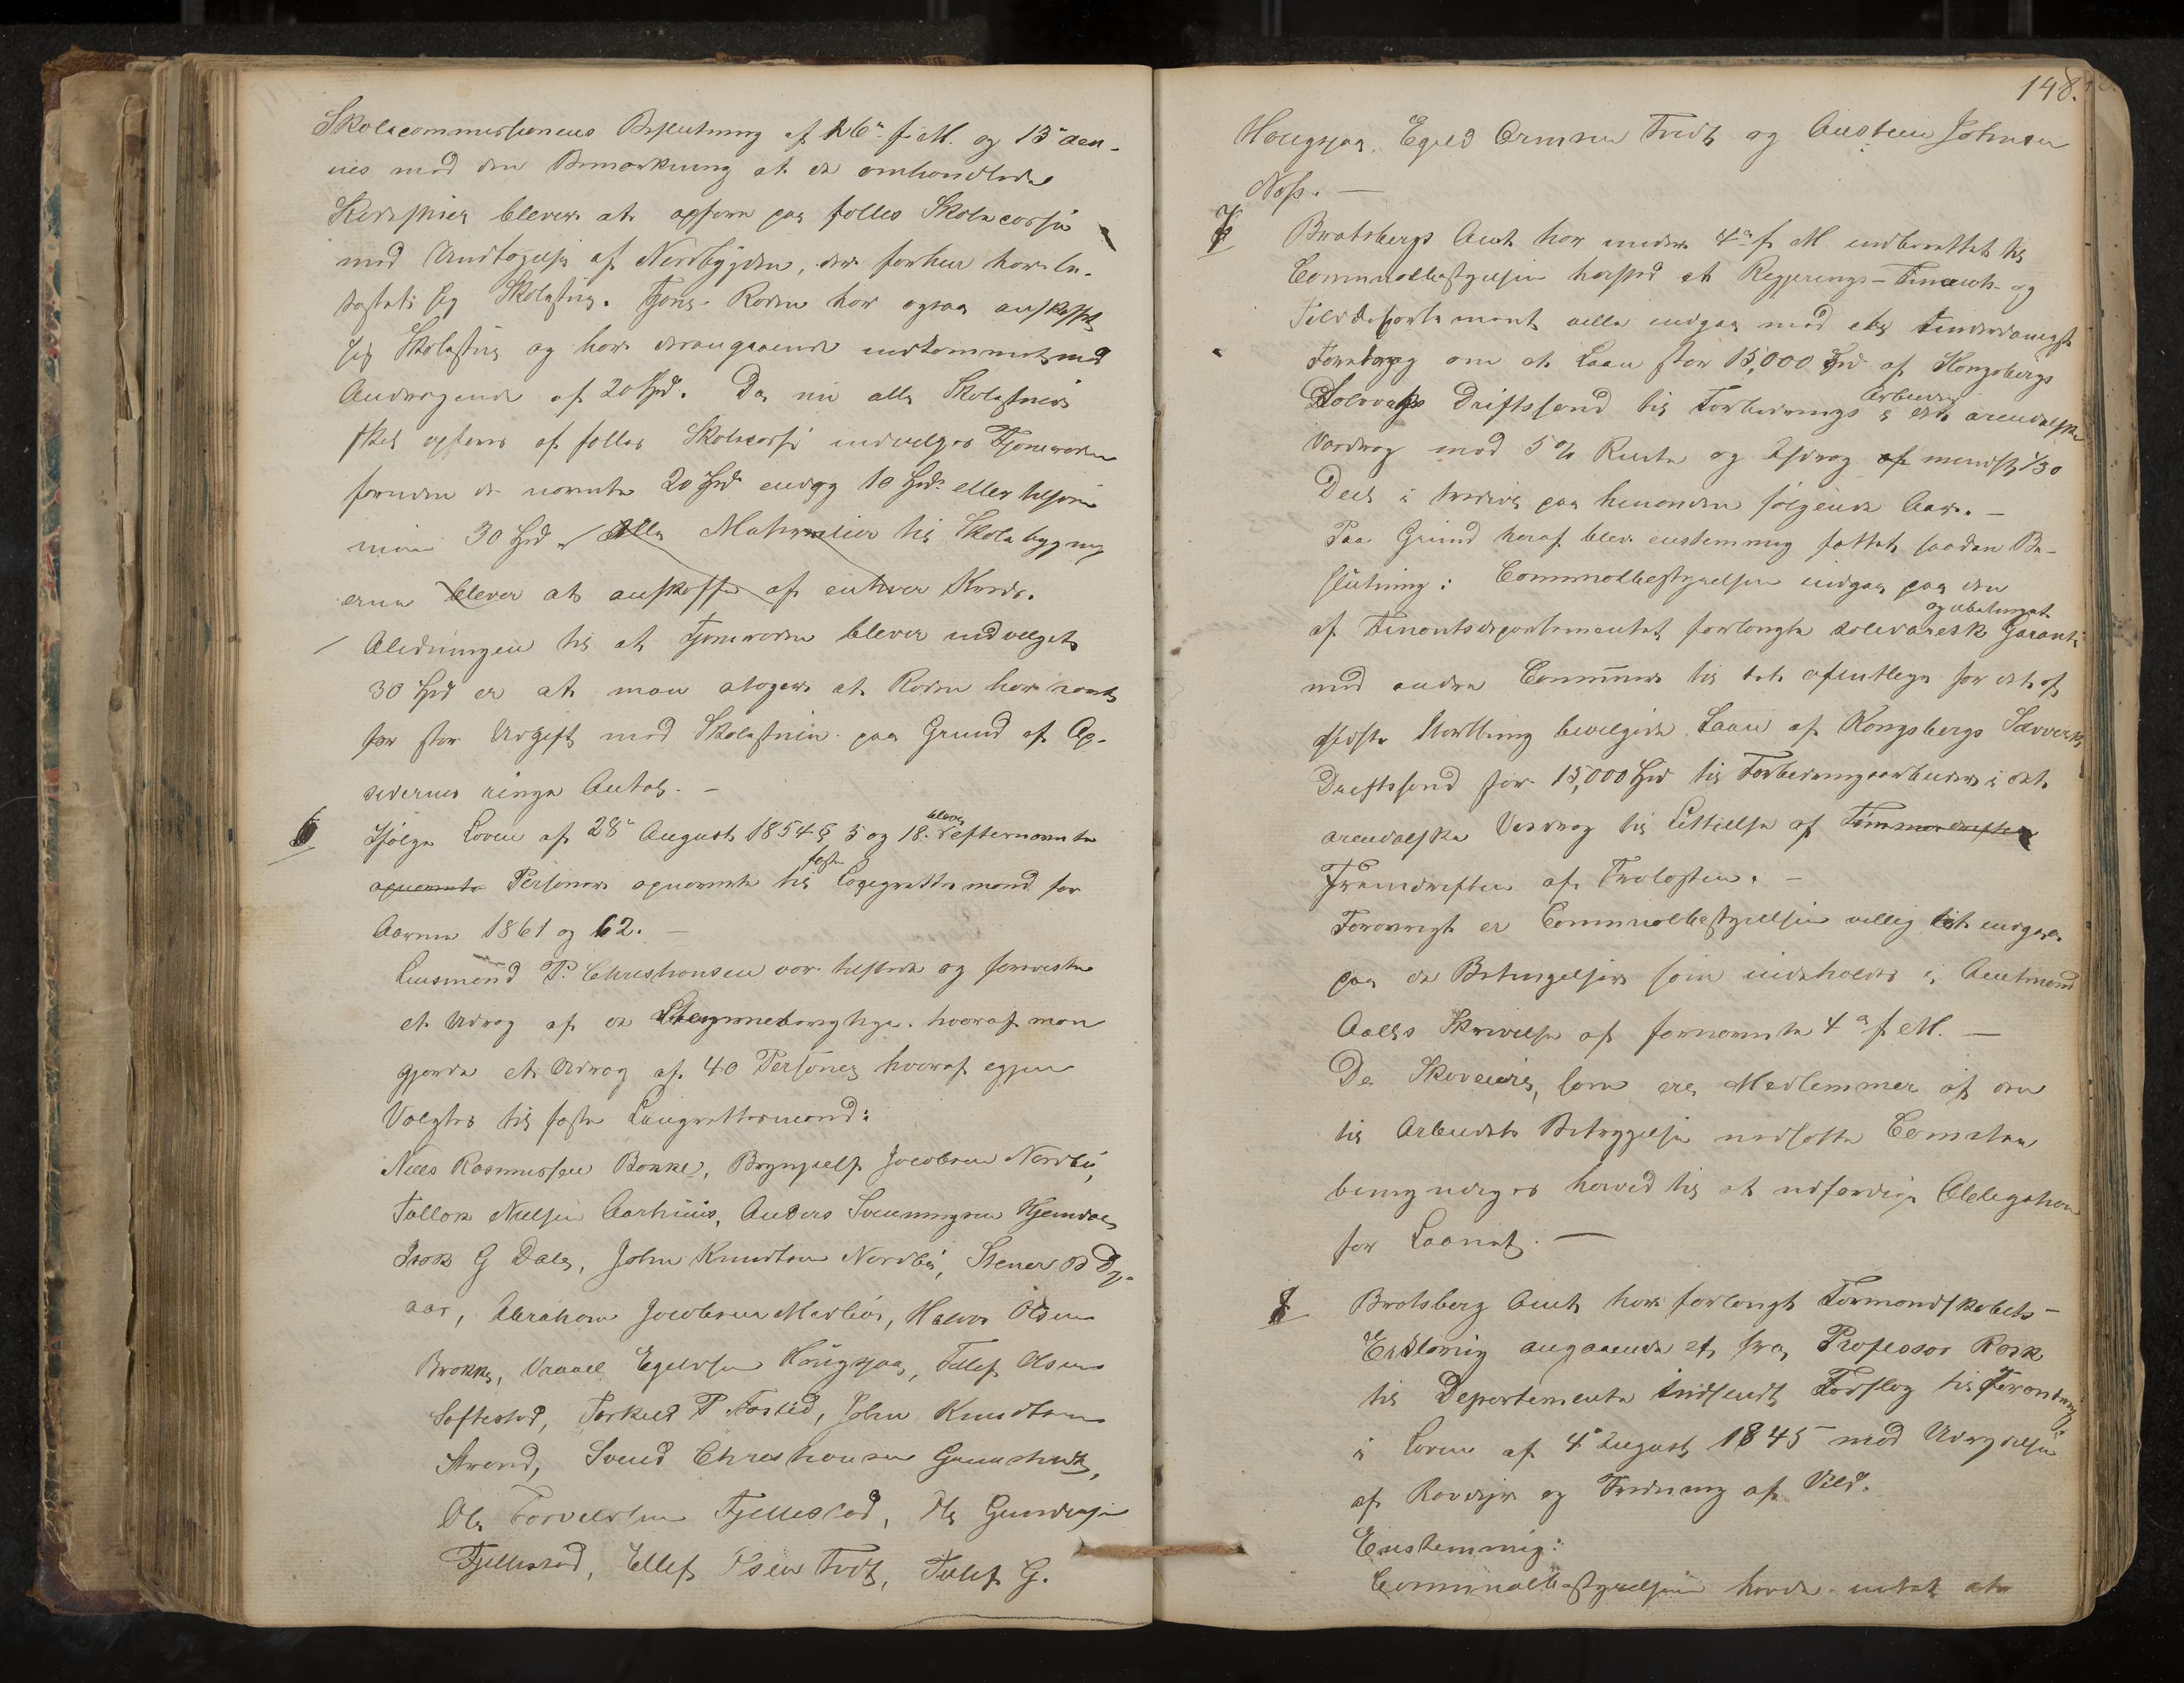 Skolecommissionens Beslutning af 26de f. M. og 13de den-
nes med den Bemærkning at de omhandlede
bliver at opføre paa fælles Skolecasse
med Undtagelse af Nordbygden, der forhen har be-
kostet sig Skolestue. Rode har ogsaa anskaffet
sig Skolestue og har derangaaende indkommet med
Andragende af 20 Spd. Da nu alle Skolestuer
skal opføres af fælles Skolecasse
foruden de nævnte 20 Spd endog 10 Spd eller tilsam
men 30 Spd. Alle Materialier til Skolebygning
erne bliver at anskaffe af enhver Kreds.
Aledningen til at bliver
30 Spd er at man antager at Roden har havt
for stor Udgift med Skolestuen paa Grund af Op-
siderens ringe Antal. –
6 Ifølge Loven af 28de August 1854 § 5 og 18 blev efternævnte
opnævnte Personer opnævnte til faste Lagrettesmænd for
Aarene 1861 og 62. –
Lensmand P. Christiansen var tilstede og foreviste
et Udtog af de hvoraf man
gjorde et Udtog af 40 Personer hvoraf igjen
Valgtes til faste Laugrettesmænd:
Niels Rasmussen Bakke, Brynjulf Jacobsen Nordbø,
Tallak Nielsen Aarhuus, Anders Svenningsen
Isak G Dale, John Knudsen Nordbø, Stener O Dy-
aas, Abraham Jacobsen Mæelbø, Halvor Olsen
Brokke, Vraal Egilsen Haugsjaa, Tellef Olsen
Softestad, Torkild P. , John Knudsen
Strand, Svend Christiansen
Ole Torvildsen Fjellestad, Ole Gundersen
Fjellestad, Ellef Olsen Tvedt, Tellef G.
148.
Haugsjaa, Egild Ormsen Tvedt og Austein Johnsen
Næs. –
7 Bratsbergs Amt har under 4de f. M indberettet til
Communalbestyrelsen hvorvidt et Regjerings-Finants- og
Tolddepartement ville indgaa med
Foredrag om et Laan stor 15,000 Spd af Kongsbergs
Sølvværks Driftsfond til Forbedrings Arbeider i det arendalske
Vasdrag mod 5 % Rente og Afdrag af mindst 1/30
Deel i tredive paa hinanden følgende Aar. –
Paa Grund heraf blev eenstemmig fattet saadan Be-
slutning: Communalbestyrelsen indgaar paa den
af Finantsdepartementet forlangte solidarisk og ubetinget Garanti
med andre Communer til det offentlige for det af
sidste Storthing bevilgede Laan af Kongsbergs Sølvværks
Driftsfond stor 15,000 Spd til Forbedringsarbeider i det
arendalske Vasdrag til Lettelse af Tømmerdriften
Fremdriften af Trælasten. –
Forøvrigt er Communalbestyrelsen villig til at indgaa
paa de Betingelser som indeholdes i Amtmand
Aalls Skrivelse af fornævnte 4de f. M. –
De Skoveiere, som ere Medlemmer af den
til Arbeidets Betryggelse nedsatte Comitee
bemyndiges herved til at udfærdige Obligation
for Laanet. –
8 Bratsberg Amt har forlangt Formandskabets
Erklæring angaaende et fra Professor Rask
til Departementet indsendt Forslag til Forandring
i Loven af 4de August 1845 med Udryddelse
af Rovdyr og Fredning af Vildt.
Eenstemmig:
Communalbestyrelsen havde intet at